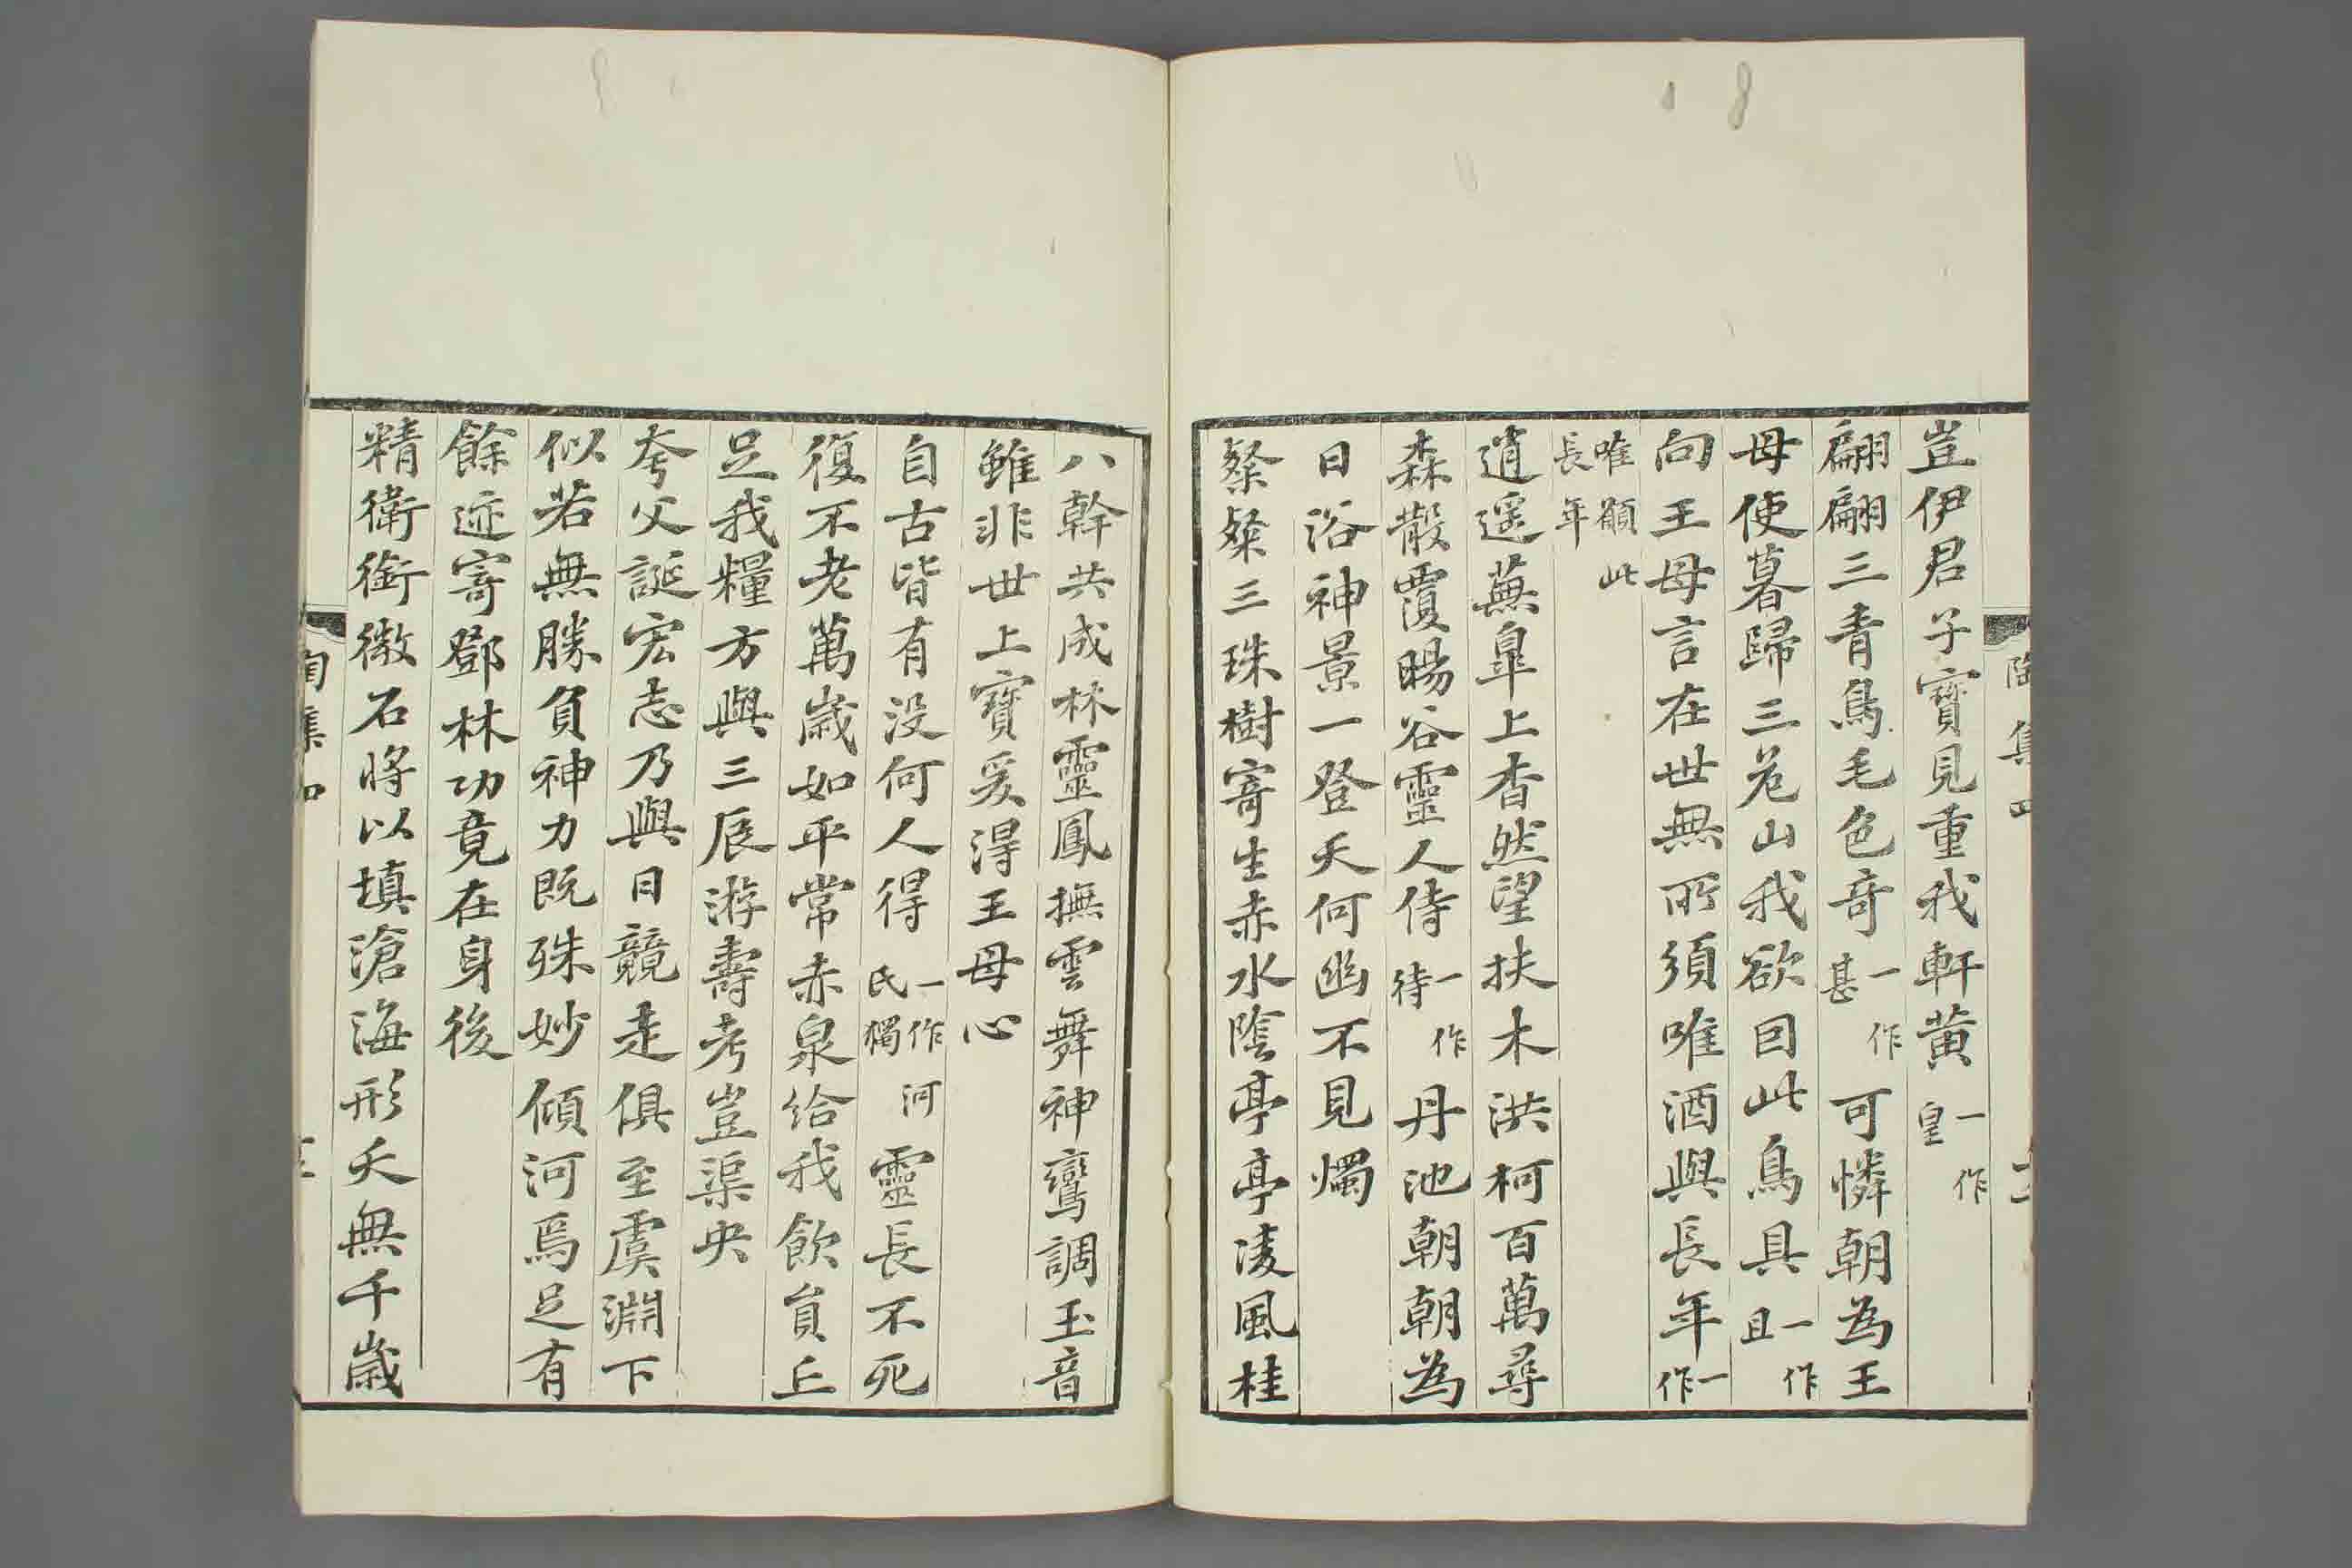 豈伊君子寶見重我軒黄一作皇
翩翩三青鳥毛色奇一作甚可憐朝為王
母使暮歸三危山我欲因此鳥具一作且
向王母言在世無所須唯酒與長年一作
唯願此長年
逍遥蕪皐上杳然望扶木洪柯百萬尋
森散覆暘谷靈人侍一作待丹池朝朝為
日浴神景一登天何幽不見燭
粲粲三珠樹寄生赤水陰亭亭凌風桂
陶集四
八幹共成林靈鳳撫雲舞神鸞調玉音
雖非世上寶爰得王母心
自古皆有没何人得一作河氏獨靈長不死
復不老萬歳如平常赤泉給我飲員丘
足我糧方與三辰游壽考豈渠央
夸父誕宏志乃與日競走俱至虞淵下
似若無勝負神力既殊妙傾河焉足有
餘迹寄鄧林功竟在身後
精衛銜微石將以填滄海形夭無千歳
陶集四